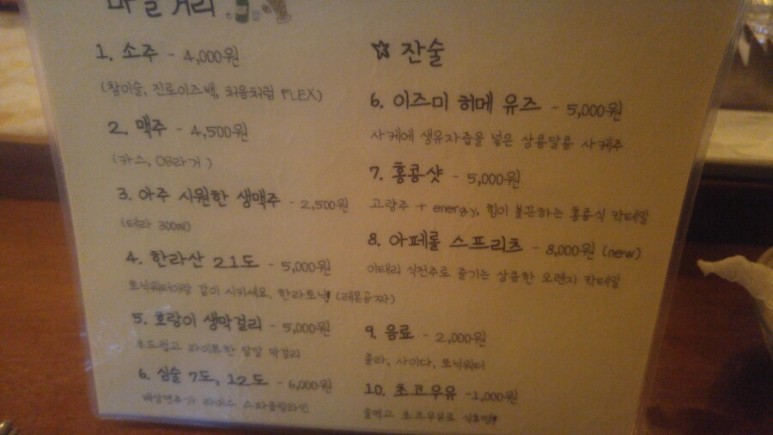 마실거리
1. 소주 - 4,000원
(참이슬, 진로이즈백, 처음처럼 FLEX)
2. 맥주 - 4,500원
(카스, OB라거)
3. 아주 시원한 생맥주 - 2,500원
(테라 300ml)
4. 한라산 21도 - 5,000원
토닉워터이랑 같이 시키세요, 한라토닉 (레몬공짜)
5. 호랑이 생막걸리 - 5,000원
부드럽고 라이트한 막걸리
6. 심술 7도, 12도 - 6,000원
☆ 잔술
6. 이즈미 허메 유즈 - 5,000원
사케에 생유자즙을 넣은 상큼달콤 사케주
7. 홍콩샷 - 5,000원
고량주 + energy, 힘이 불끈하는 홍콩식 칵테일
8. 아페롤 스프리츠 - 8,000원 (new)
이태리 식전주로 즐기는 상큼한 오렌지 칵테일
9. 음료 - 2,000원
콜라, 사이다, 토닉워터
10. 초코우유 - 1,000원
술먹고 초코우유로